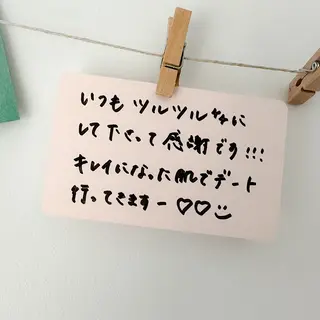 いつも ツルツルなに
して下さって感謝です!!!
キレイになった肌でデート
行ってきますー♡♡☺